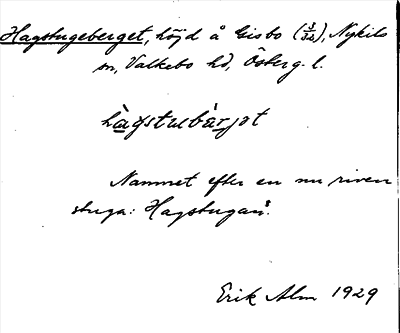 Hagstugeberget, höjd å Gisbo (3/32), Nykils
sn, Valkebo hd, Österg. l.
hàgstubàrjet
Namnet efter en nu riven
stuga: Hagstugan.
Erik Alm 1929